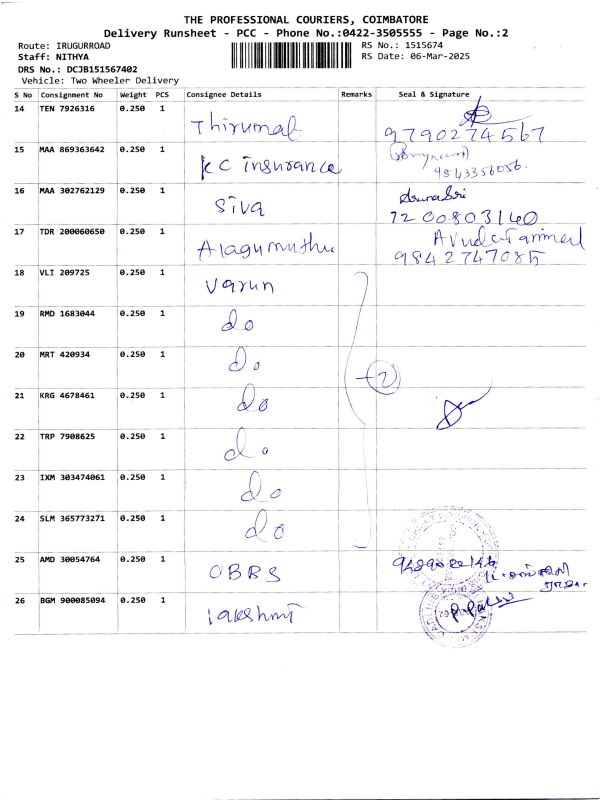 THE PROFESSIONAL COURIERS, COIMBATORE
Delivery Runsheet - PCC - Phone No.:0422-3505555 - Page No.:2
Route: IRUGURROAD RS No.: 1515674
Staff: NITHYA RS Date: 06-Mar-2025
DRS No.: DCJB151567402
Vehicle: Two Wheeler Delivery
S No Consignment No Weight PCS Consignee Details Remarks Seal & Signature
14 TEN 7926316 0.250 1 Thirumal 9790274567
15 MAA 869363642 0.250 1 KC insurance 9843356056.
16 MAA 302762129 0.250 1 Siva 7200803140
17 TDR 200060650 0.250 1 Alagumuthu 9842747085
18 VLI 209725 0.250 1 Varun
19 RMD 1683044 0.250 1 do
20 MRT 420934 0.250 1 do
21 KRG 4678461 0.250 1 do
22 TRP 7908625 0.250 1 do
23 IXM 303474061 0.250 1 do
24 SLM 365773271 0.250 1 do
25 AMD 30054764 0.250 1 OBBS
26 BGM 900085094 0.250 1 lakshmi